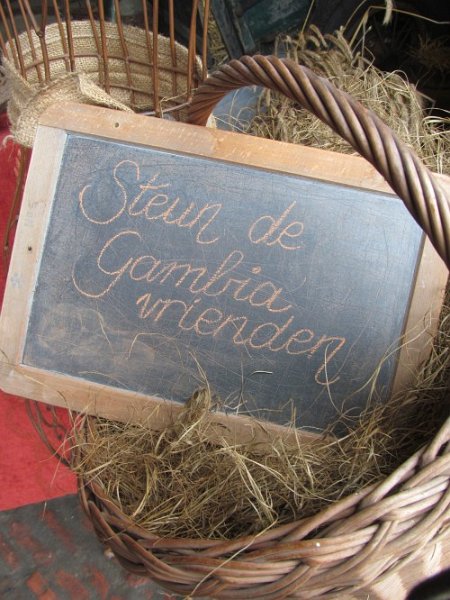 Steun de
Gambia
vrienden